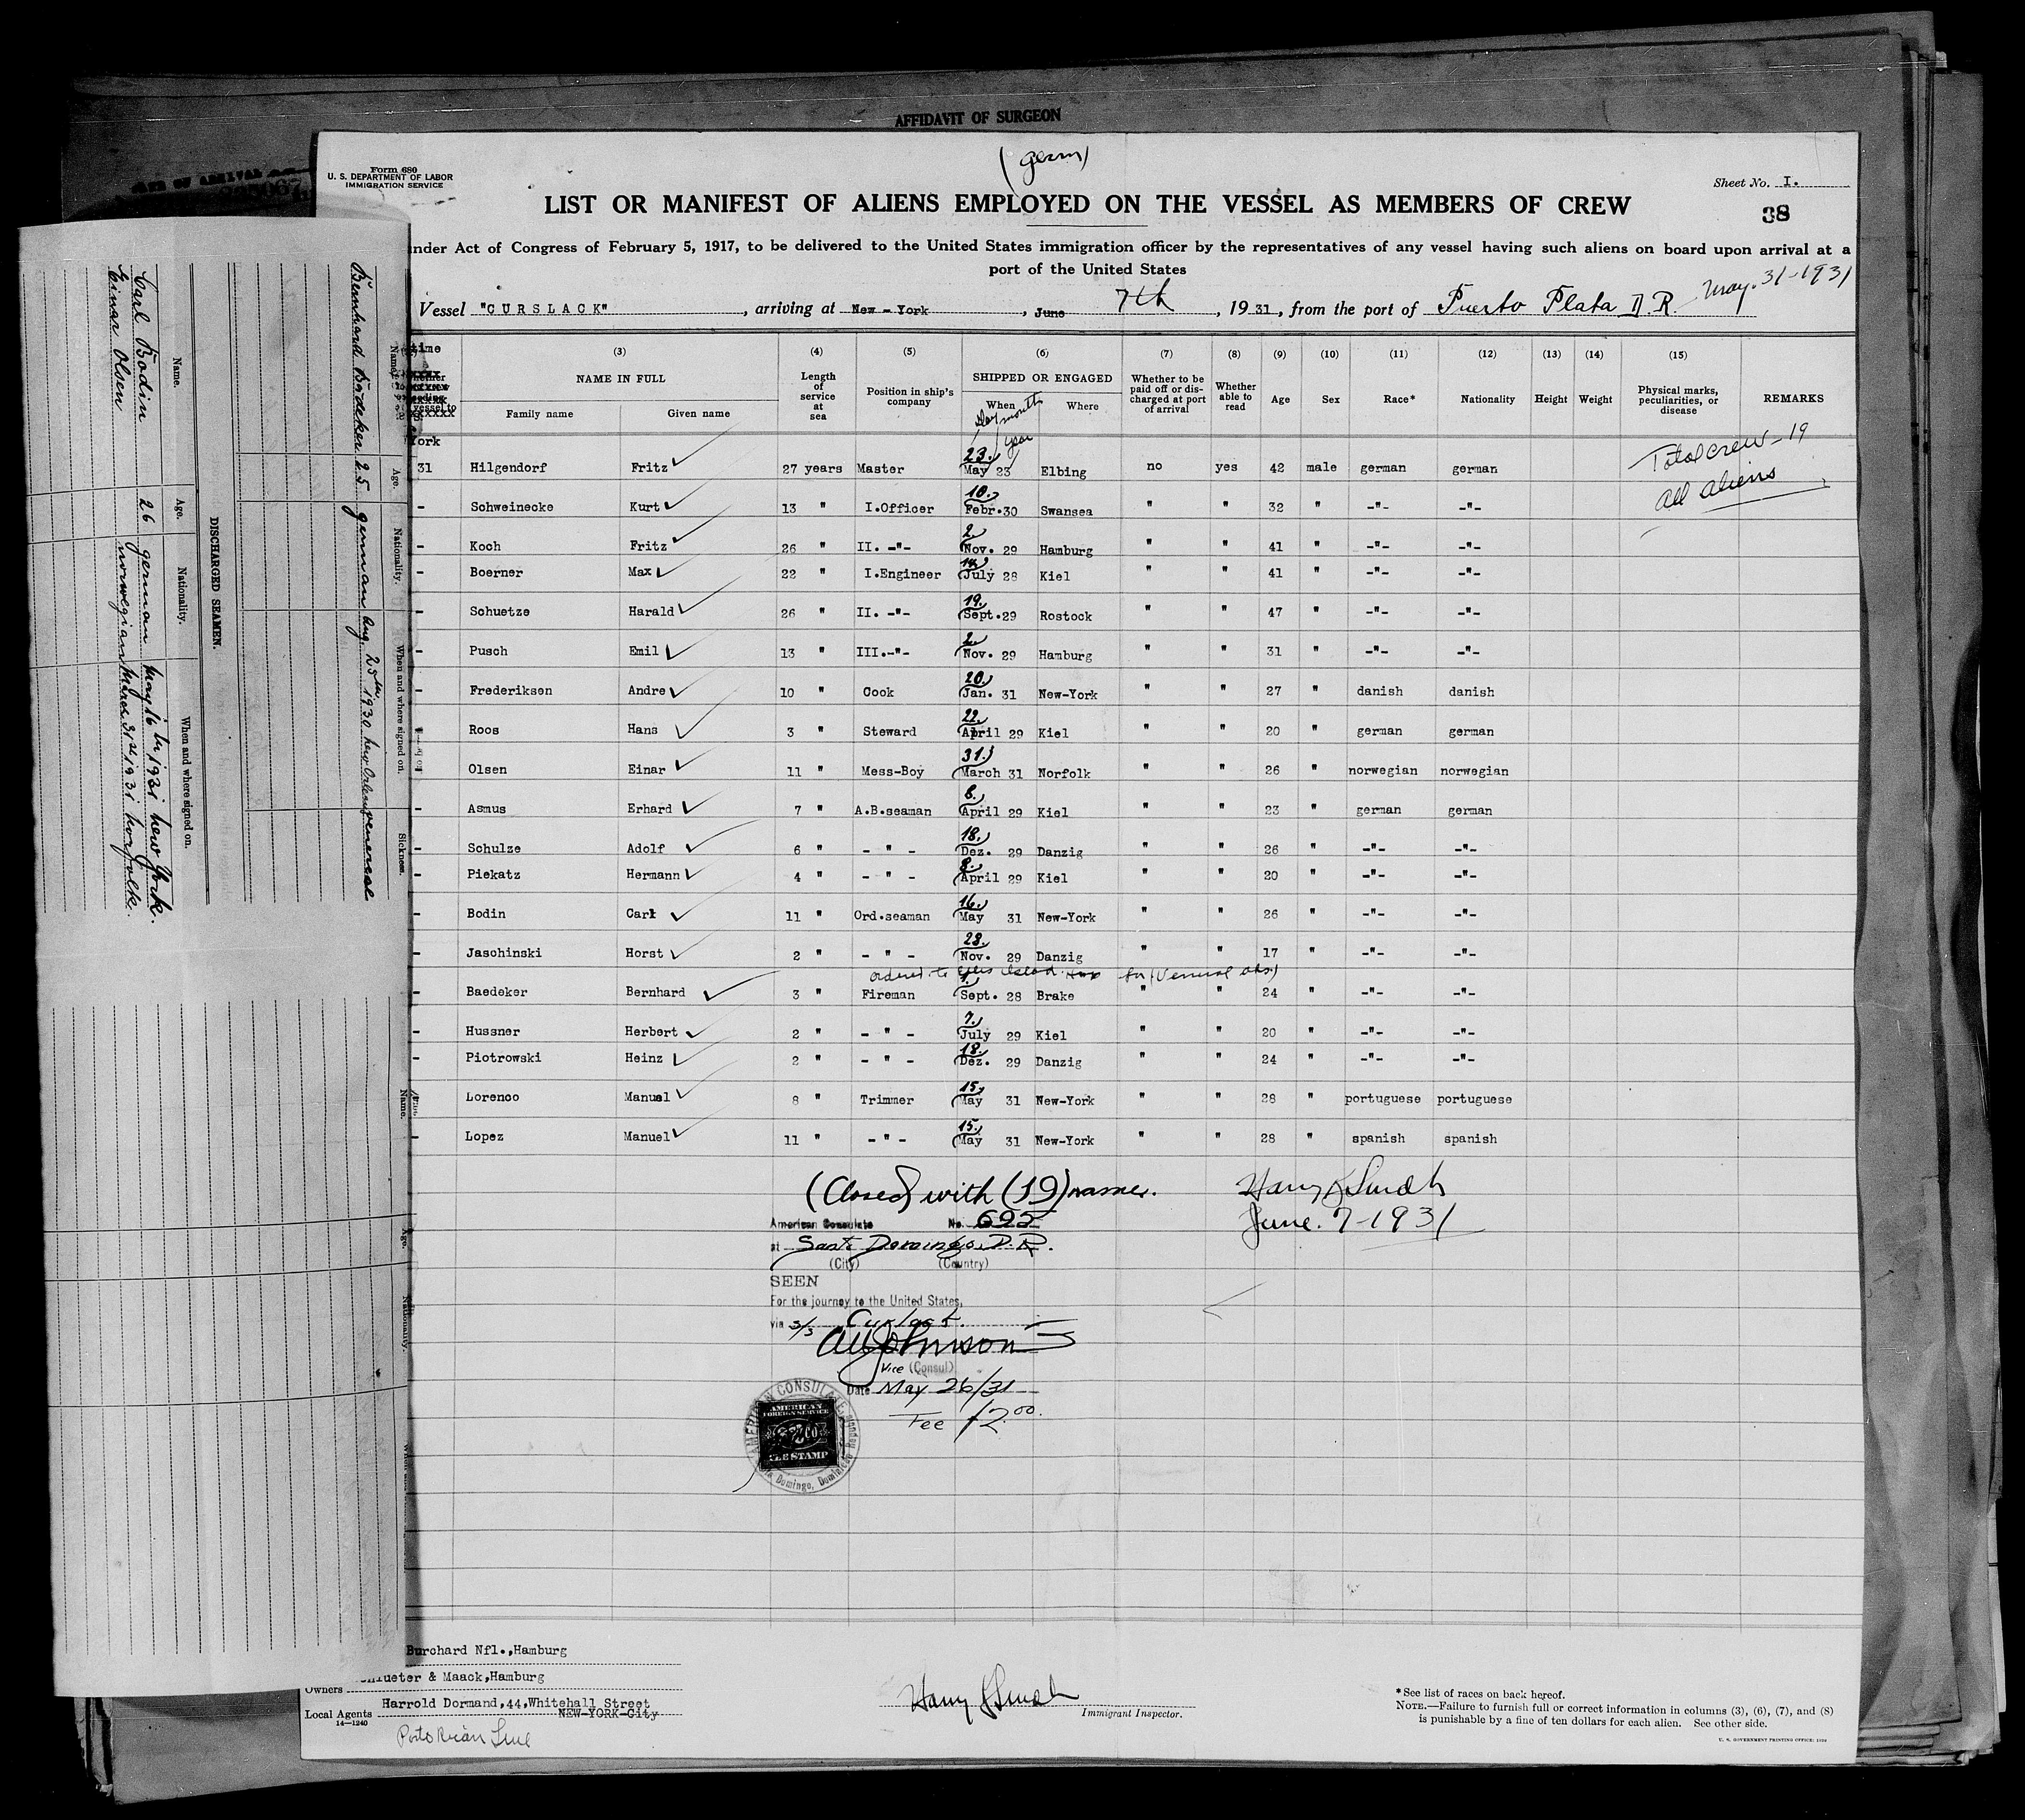 AFFIDAVIT OF SURGEON
(germ)
Form 680
U. S. DEPARTMENT OF LABOR
IMMIGRATION SERVICE
Sheet No. I.
LIST OR MANIFEST OF ALIENS EMPLOYED ON THE VESSEL AS MEMBERS OF CREW
38
under Act of Congress of February 5, 1917, to be delivered to the United States immigration officer by the representatives of any vessel having such aliens on board upon arrival at a
port of the United States
May. 31-1931
Vessel "CURSLACK", arriving at New-York, June 7th, 1931, from the port of Puerto Plata D.R.
(3) (4) (5) (6) (7) (8) (9) (10) (11) (12) (13) (14) (15)
NAME IN FULL Length of service at sea Position in ship's company SHIPPED OR ENGAGED Whether to be paid off or discharged at port of arrival Whether able to read Age Sex Race* Nationality Height Weight Physical marks, peculiarities, or disease REMARKS
Family name Given name When Where
Day month year
York
Total crew-19
All aliens
31 Hilgendorf Fritz 27 years Master 23. May 23 Elbing no yes 42 male german german
- Schweinecke Kurt 13 " I.Officer 10. Febr.30 Swansea " " 32 " -"- -"-
- Koch Fritz 26 " II. -"- 2. Nov. 29 Hamburg " " 41 " -"- -"-
- Boerner Max 22 " I.Engineer 14. July 28 Kiel " " 41 " -"- -"-
- Schuetze Harald 26 " II. -"- 19. Sept.29 Rostock " " 47 " -"- -"-
- Pusch Emil 13 " III.-"- 2. Nov. 29 Hamburg " " 31 " -"- -"-
- Frederiksen Andre 10 " Cook 20. Jan. 31 New-York " " 27 " danish danish
- Roos Hans 3 " Steward 22. April 29 Kiel " " 20 " german german
- Olsen Einar 11 " Mess-Boy 31. March 31 Norfolk " " 26 " norwegian norwegian
- Asmus Erhard 7 " A.B.seaman 8. April 29 Kiel " " 23 " german german
- Schulze Adolf 6 " - " - 18. Dez. 29 Danzig " " 26 " -"- -"-
- Piekatz Hermann 4 " - " - 8. April 29 Kiel " " 20 " -"- -"-
- Bodin Carl 11 " Ord.seaman 16. May 31 New-York " " 26 " -"- -"-
- Jaschinski Horst 2 " - " - 23. Nov. 29 Danzig " " 17 " -"- -"-
ordered to Ellis Island for (Venereal obs)
- Baedeker Bernhard 3 " Fireman 1. Sept. 28 Brake " " 24 " -"- -"-
- Hussner Herbert 2 " - " - 7. July 29 Kiel " " 20 " -"- -"-
- Piotrowski Heinz 2 " - " - 18. Dez. 29 Danzig " " 24 " -"- -"-
- Lorenco Manuel 8 " Trimmer 15. May 31 New-York " " 28 " portuguese portuguese
- Lopez Manuel 11 " - " - 15. May 31 New-York " " 28 " spanish spanish
(Closed) with (19) names.
Harry J Smith
June. 7-1931
American Consulate No. 692
at Santo Domingo, D.R.
(City) (Country)
SEEN
For the journey to the United States,
via S/S Curslack.
Johnson
Vice (Consul)
Date May 26/31
Fee $2.00.
AMERICAN CONSULATE
AMERICAN
FOREIGN SERVICE
FEE STAMP
Domingo, Dominican Republic
Burchard Nfl.,Hamburg
Schlueter & Maack,Hamburg
Owners
Harrold Dormand,44,Whitehall Street
Local Agents NEW-YORK-City
14—1240
Porto Rican Line
Harry J Smith
Immigrant Inspector.
*See list of races on back hereof.
NOTE.—Failure to furnish full or correct information in columns (3), (6), (7), and (8)
is punishable by a fine of ten dollars for each alien. See other side.
U. S. GOVERNMENT PRINTING OFFICE
Name. Age. Nationality. When and where signed on. Sickness.
Bernhard Bädeker 25 german Aug. 25th 1930 New Orleans venereal
DISCHARGED SEAMEN.
Name. Age. Nationality. When and where signed on.
Carl Bodin 26 german May 16th 1931 New York.
Einar Olsen norwegian March 31st 1931 Norfolk.
Name.
Age.
Nationality.